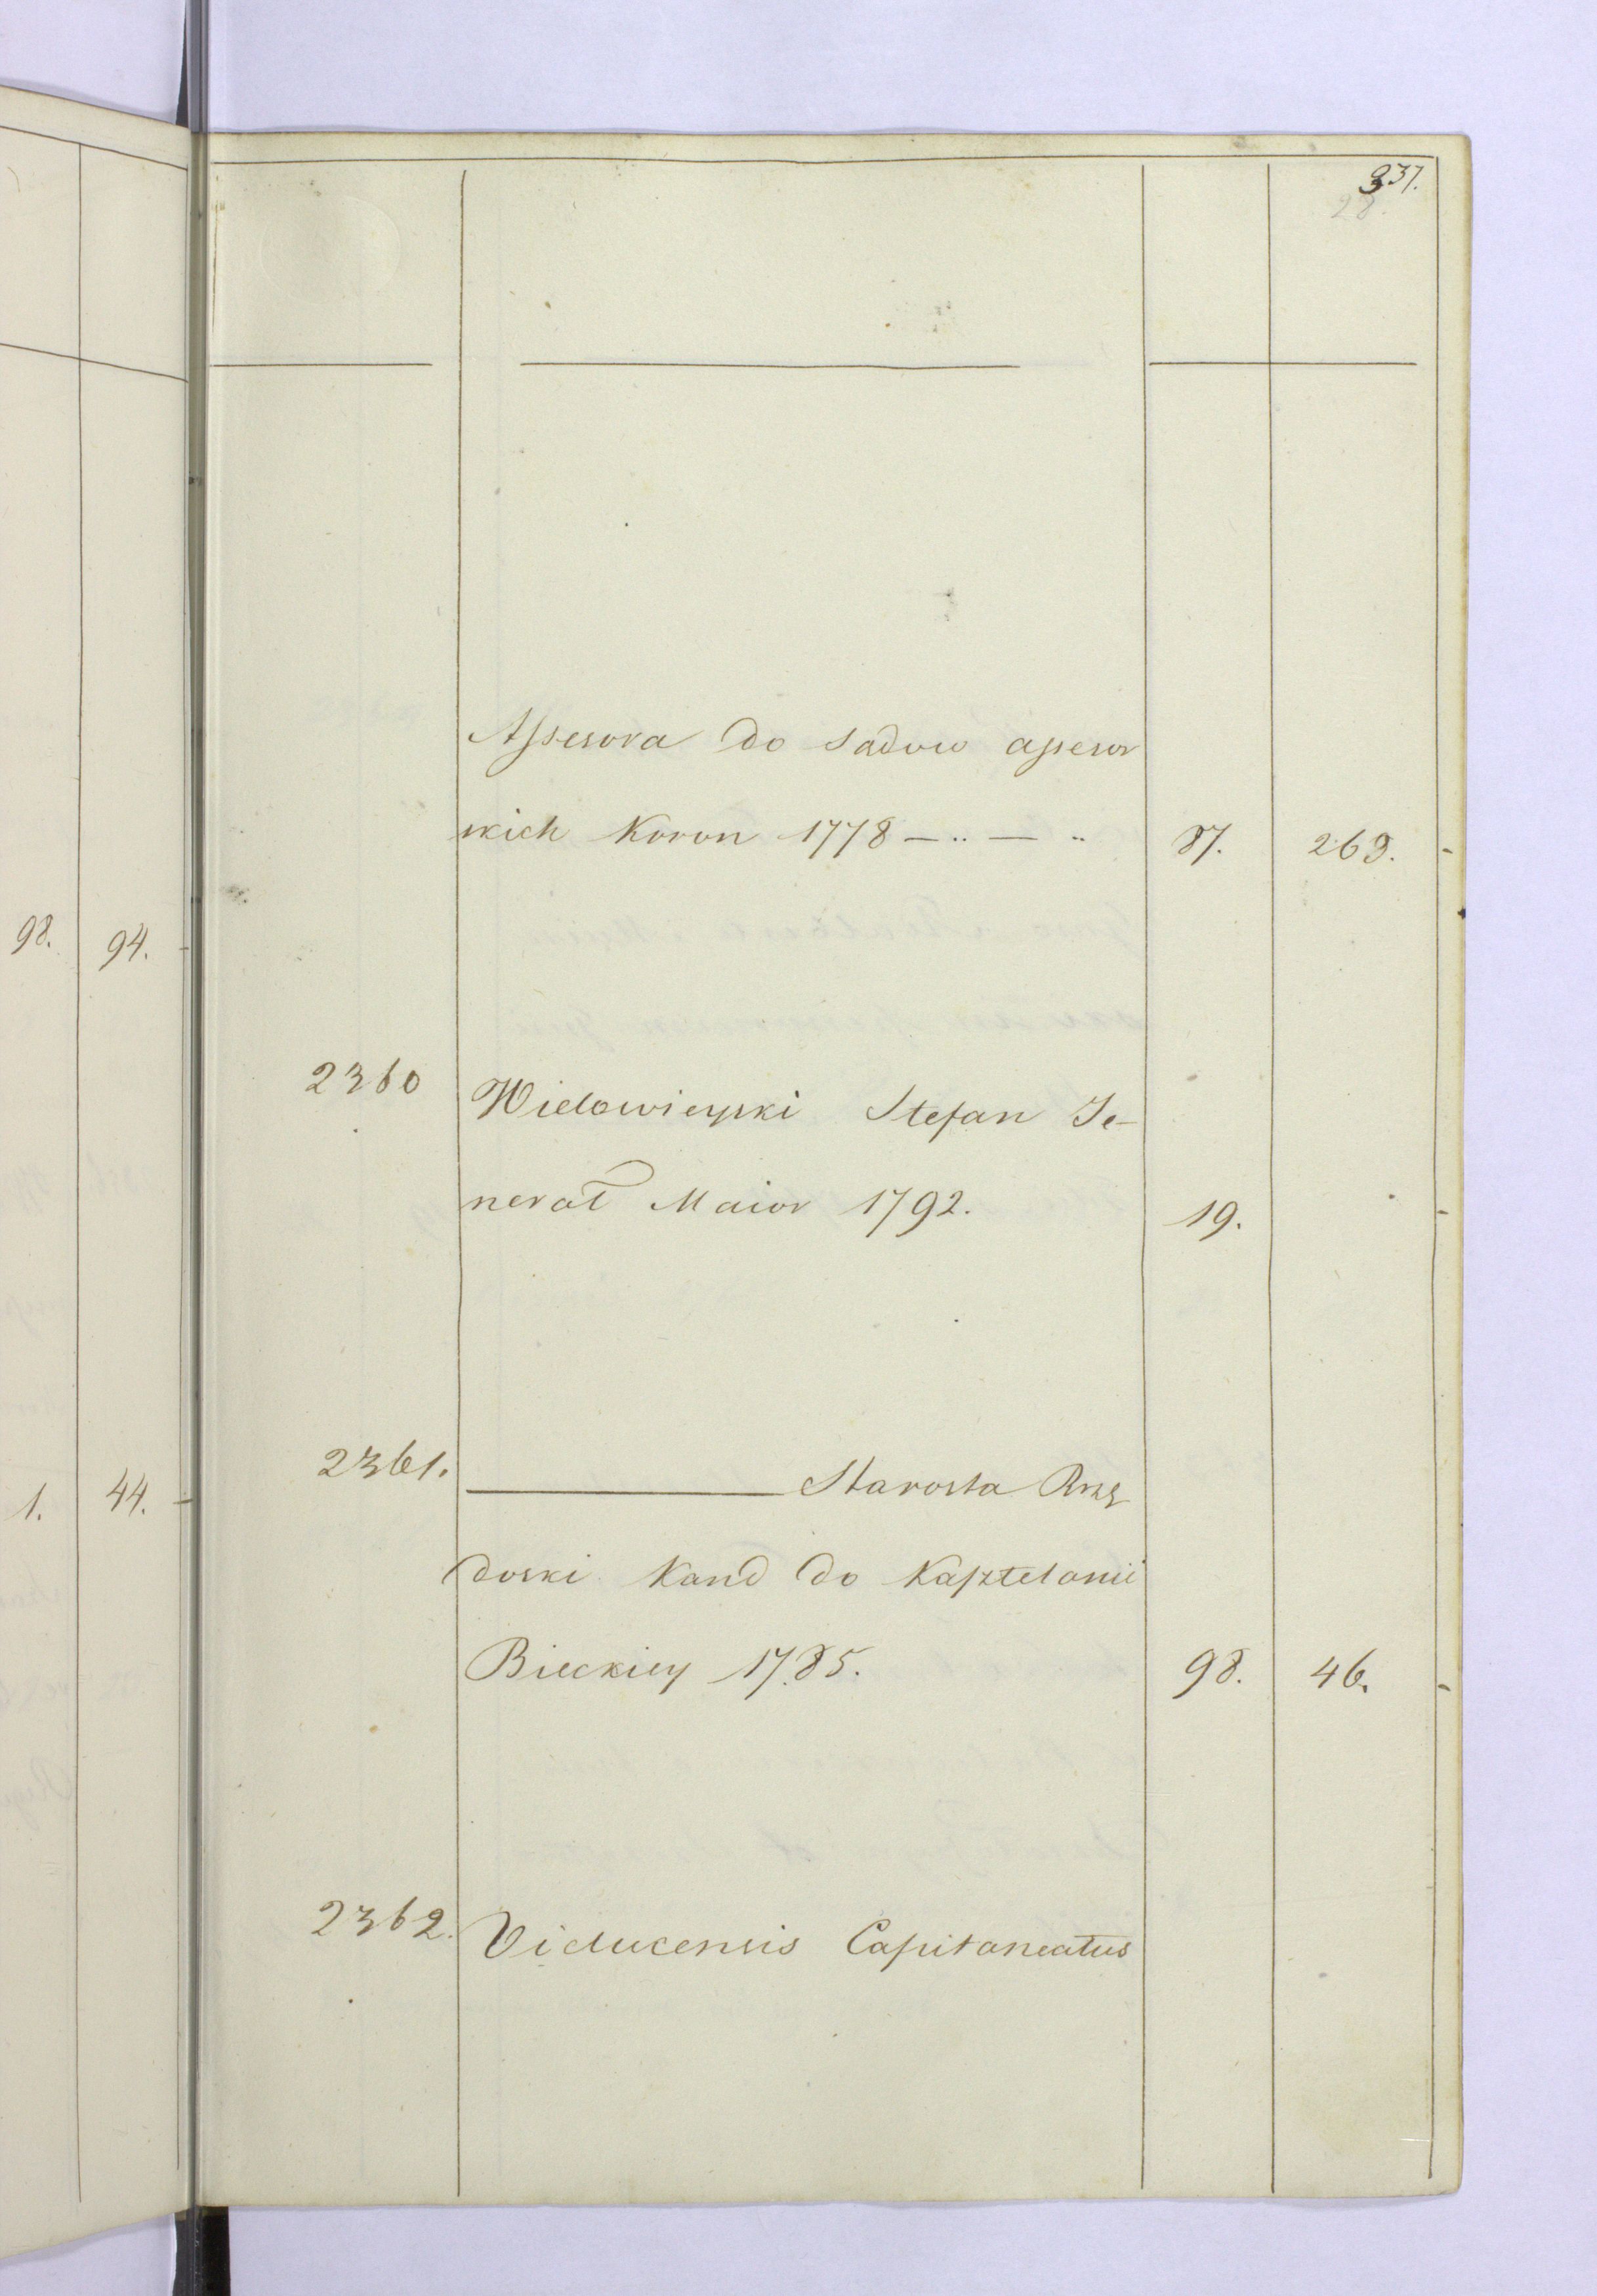 337.
28.
Assesora do sadow assesor
skich Koron 1778 — .. — ..	87.	269.
98.	94.
2360	Wielowieyski Stefan Je-
nerał Maior 1792.	19.
2361.	——— Starosta Rzę
1.	44.
doski Kand do Kasztelanii
Bieckiey 1785.	98.	46.
2362.	Viducensis Capitaneatus